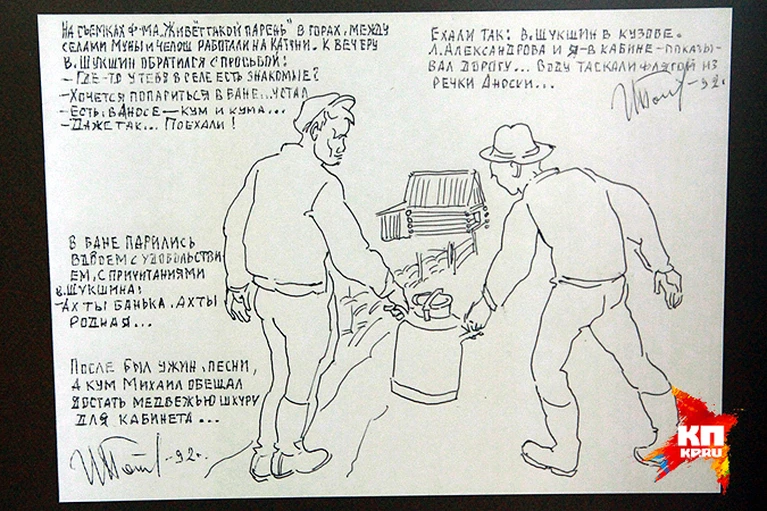 На съёмках ф-ма „Живёт такой парень" в горах, между
сёлами Муны и Чепош работали на Катуни. К вечеру
В. Шукшин обратился с просьбой:
– Где-то у тебя в селе есть знакомые?
– Хочется попариться в бане... устал
– Есть, в Аносе — кум и кума...
– Даже так... Поехали!
Ехали так: В. Шукшин в кузове.
Л. Александрова и я – в кабине – показы-
вал дорогу... Воду таскали флягой из
речки Аноски...
– 92 г.
В бане парились
вдвоем с удовольстви
ем, с причитаниями
В. Шукшина:
– Ах ты банька, ах ты
родная...
После был ужин, песни,
а кум Михаил обещал
достать медвежью шкуру
для кабинета...
– 92 г.
КП
KP.RU